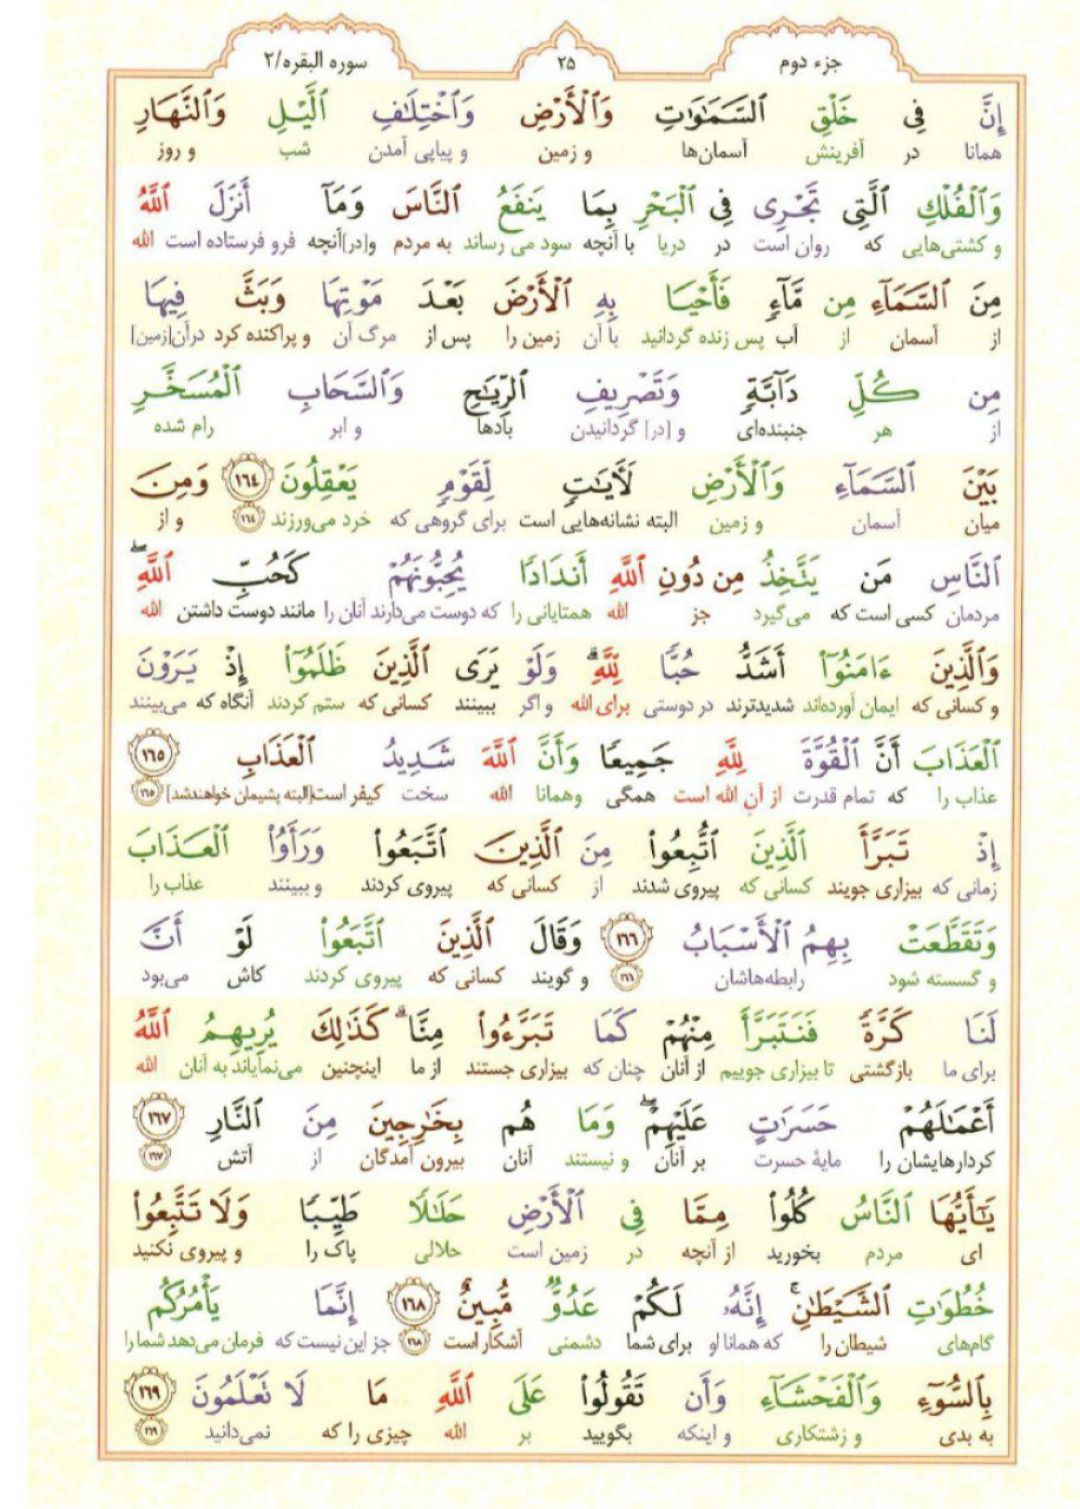 جزء دوم
۲۵
سوره البقره/۲
إِنَّ فِى خَلْقِ ٱلسَّمَـٰوَٰتِ وَٱلْأَرْضِ وَٱخْتِلَـٰفِ ٱلَّيْلِ وَٱلنَّهَارِ
همانا در آفرینش آسمان‌ها و زمین و پیاپی آمدن شب و روز
وَٱلْفُلْكِ ٱلَّتِى تَجْرِى فِى ٱلْبَحْرِ بِمَا يَنفَعُ ٱلنَّاسَ وَمَآ أَنزَلَ ٱللَّهُ
و کشتی‌هایی که روان است در دریا با آنچه سود می رساند به مردم و[در]آنچه فرو فرستاده است الله
مِنَ ٱلسَّمَآءِ مِن مَّآءٍ فَأَحْيَا بِهِ ٱلْأَرْضَ بَعْدَ مَوْتِهَا وَبَثَّ فِيهَا
از آسمان از آب پس زنده گردانید با آن زمین را پس از مرگ آن و پراکنده کرد درآن[زمین]
مِن كُلِّ دَآبَّةٍ وَتَصْرِيفِ ٱلرِّيَـٰحِ وَٱلسَّحَابِ ٱلْمُسَخَّرِ
از هر جنبنده‌ای و [در] گردانیدن بادها و ابر رام شده
بَيْنَ ٱلسَّمَآءِ وَٱلْأَرْضِ لَـَٔايَـٰتٍ لِّقَوْمٍ يَعْقِلُونَ ١٦٤ وَمِنَ
میان آسمان و زمین البته نشانه‌هایی است برای گروهی که خرد می‌ورزند ١٦٤ و از
ٱلنَّاسِ مَن يَتَّخِذُ مِن دُونِ ٱللَّهِ أَندَادًا يُحِبُّونَهُمْ كَحُبِّ ٱللَّهِ ۖ
مردمان کسی است که می‌گیرد جز الله همتایانی را که دوست می‌دارند آنان را مانند دوست داشتن الله
وَٱلَّذِينَ ءَامَنُوٓا۟ أَشَدُّ حُبًّا لِّلَّهِ ۗ وَلَوْ يَرَى ٱلَّذِينَ ظَلَمُوٓا۟ إِذْ يَرَوْنَ
و کسانی که ایمان آورده‌اند شدیدترند در دوستی برای الله و اگر ببینند کسانی که ستم کردند آنگاه که می‌بینند
ٱلْعَذَابَ أَنَّ ٱلْقُوَّةَ لِلَّهِ جَمِيعًا وَأَنَّ ٱللَّهَ شَدِيدُ ٱلْعَذَابِ ١٦٥
عذاب را که تمام قدرت از آنِ الله است همگی وهمانا الله سخت کیفر است[البته پشیمان خواهندشد] ١٦٥
إِذْ تَبَرَّأَ ٱلَّذِينَ ٱتُّبِعُوا۟ مِنَ ٱلَّذِينَ ٱتَّبَعُوا۟ وَرَأَوُا۟ ٱلْعَذَابَ
زمانی که بیزاری جویند کسانی که پیروی شدند از کسانی که پیروی کردند و ببینند عذاب را
وَتَقَطَّعَتْ بِهِمُ ٱلْأَسْبَابُ ١٦٦ وَقَالَ ٱلَّذِينَ ٱتَّبَعُوا۟ لَوْ أَنَّ
و گسسته شود رابطه‌هاشان ١٦٦ و گویند کسانی که پیروی کردند کاش می‌بود
لَنَا كَرَّةً فَنَتَبَرَّأَ مِنْهُمْ كَمَا تَبَرَّءُوا۟ مِنَّا ۗ كَذَٰلِكَ يُرِيهِمُ ٱللَّهُ
برای ما بازگشتی تا بیزاری جوییم از آنان چنان که بیزاری جستند از ما اینچنین می‌نمایاند به آنان الله
أَعْمَـٰلَهُمْ حَسَرَٰتٍ عَلَيْهِمْ ۖ وَمَا هُم بِخَـٰرِجِينَ مِنَ ٱلنَّارِ ١٦٧
کردارهایشان را مایۀ حسرت بر آنان و نیستند آنان بیرون آمدگان از آتش ١٦٧
يَـٰٓأَيُّهَا ٱلنَّاسُ كُلُوا۟ مِمَّا فِى ٱلْأَرْضِ حَلَـٰلًا طَيِّبًا وَلَا تَتَّبِعُوا۟
ای مردم بخورید از آنچه در زمین است حلالی پاک را و پیروی نکنید
خُطُوَٰتِ ٱلشَّيْطَـٰنِ ۚ إِنَّهُۥ لَكُمْ عَدُوٌّ مُّبِينٌ ١٦٨ إِنَّمَا يَأْمُرُكُم
گام‌های شیطان را که همانا او برای شما دشمنی آشکار است ١٦٨ جز این نیست که فرمان می‌دهد شما را
بِٱلسُّوٓءِ وَٱلْفَحْشَآءِ وَأَن تَقُولُوا۟ عَلَى ٱللَّهِ مَا لَا تَعْلَمُونَ ١٦٩
به بدی و زشتکاری و اینکه بگویید بر الله چیزی را که نمی‌دانید ١٦٩